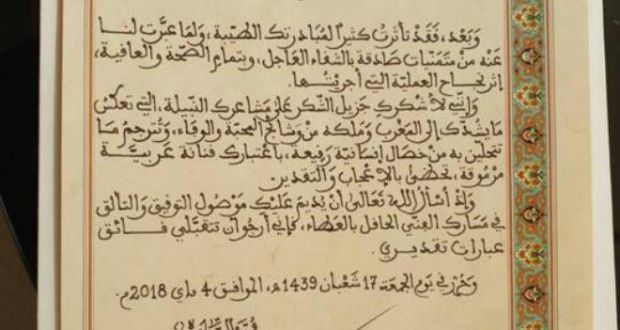 وَبَعْد، فَقَدْ تأثرتُ كثيرًا لمُبَادرتك الطيّبة، ولمَا عبَّرت لنا
عَنْهُ مِنْ مُتَمَنّيات صَادقة بالشفاء العَاجل، وبتمام الصّحّة والعافية،
إثر نجاح العمليّة التي أجريتُها.
وَإنّني لأشكُركِ جَزيل الشكر عَلى مَشاعرك النّبيلة، التي تعكسُ
مَا يشدّك إلى المَغرب وَمَلكه منْ وَشائج المحبّة والوفاء، وَتُترجمُ مَا
تتحلّين به من خصَال إنسَانيّة رَفيعة، باعتبارك فنانة عَربيّة
مرْمُوقة، تحظى بالإعْجاب والتقدير.
وَإذ أسْألُ اللهَ تعَالى أنْ يُديمَ عَليْك مَوْصُول التوفيق والتألق
في مَسَارك الفنّي الحَافل بالعَطاء، فإنّي أرجُو أنْ تتقبّلي فائق
عبارات تقديري.
وَحُرّرَ في يَوم الجمعَة 17 شعْبَان 1439هـ، المُوَافق 4 ماي 2018م.